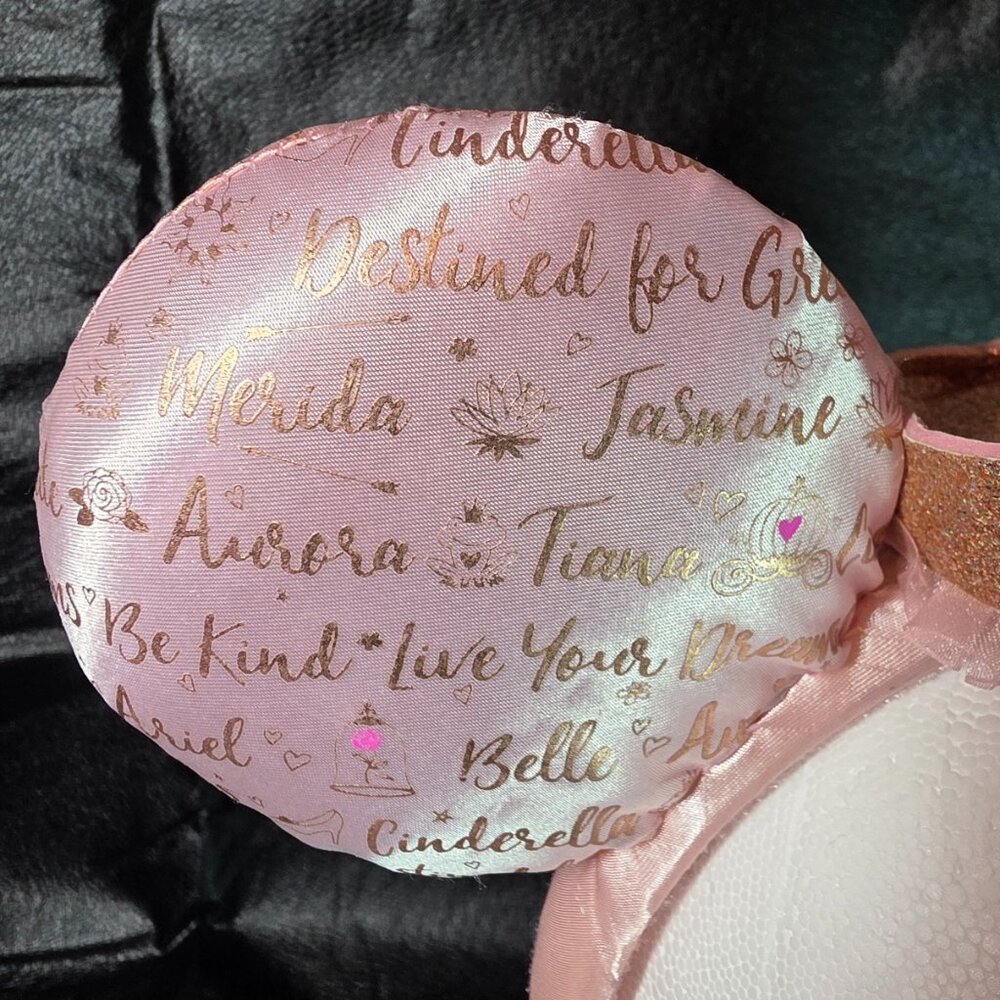 Cinderella
Destined for Gre
Merida Jasmine
Aurora Tiana
Be Kind Live Your Dreams
Ariel Belle Au
Cinderella